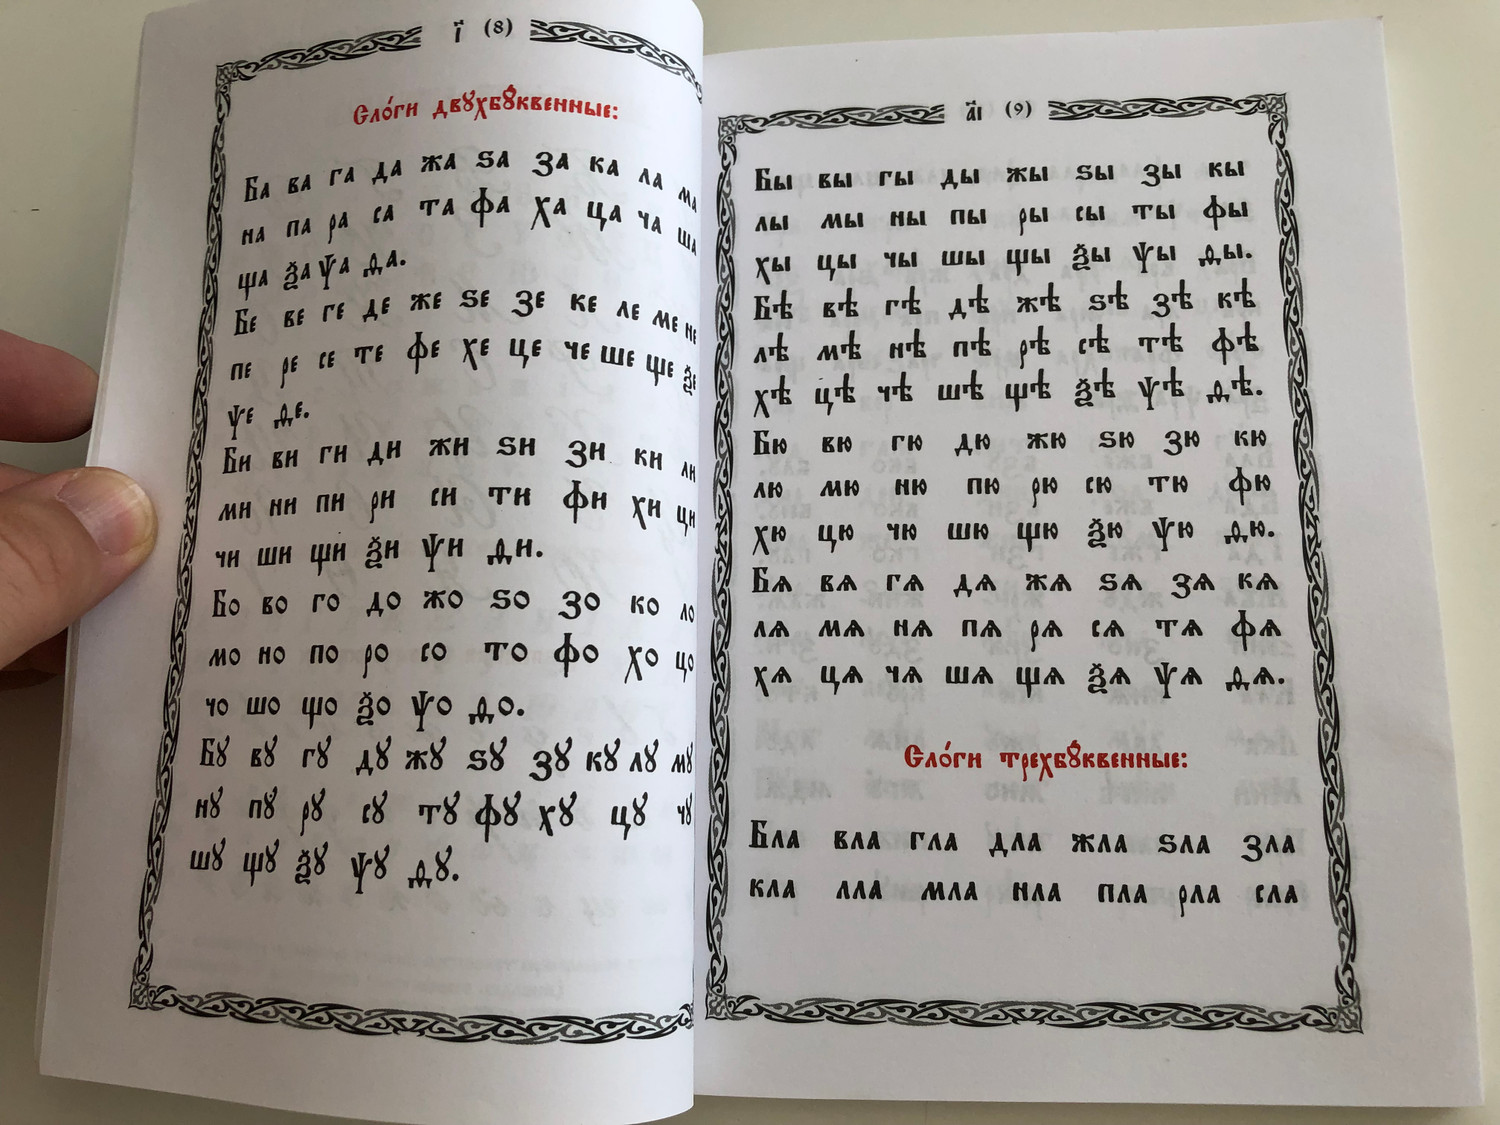 І҃ (8)
Сло́ги двꙋхбꙋ́квенные:
Ба ва га да жа ѕа за ка ла ма
на па ра са та фа ха ца ча ша
ща ѯа ѱа ѳа.
Бе ве ге де же ѕе зе ке ле ме не
пе ре се те фе хе це че ше ще ѯе
ѱе ѳе.
Би ви ги ди жи ѕи зи ки ли
ми ни пи ри си ти фи хи ци
чи ши щи ѯи ѱи ѳи.
Бо во го до жо ѕо зо ко ло
мо но по ро со то фо хо цо
чо шо що ѯо ѱо ѳо.
Бꙋ вꙋ гꙋ дꙋ жꙋ ѕꙋ зꙋ кꙋ лꙋ мꙋ
нꙋ пꙋ рꙋ сꙋ тꙋ фꙋ хꙋ цꙋ чꙋ
шꙋ щꙋ ѯꙋ ѱꙋ ѳꙋ.
а҃і (9)
Бы вы гы ды жы ѕы зы кы
лы мы ны пы ры сы ты фы
хы цы чы шы щы ѯы ѱы ѳы.
Бѣ вѣ гѣ дѣ жѣ ѕѣ зѣ кѣ
лѣ мѣ нѣ пѣ рѣ сѣ тѣ фѣ
хѣ цѣ чѣ шѣ щѣ ѯѣ ѱѣ ѳѣ.
Бю вю гю дю жю ѕю зю кю
лю мю ню пю рю сю тю фю
хю цю чю шю щю ѯю ѱю ѳю.
Бѧ вѧ гѧ дѧ жѧ ѕѧ зѧ кѧ
лѧ мѧ нѧ пѧ рѧ сѧ тѧ фѧ
хѧ цѧ чѧ шѧ щѧ ѯѧ ѱѧ ѳѧ.
Сло́ги трехбꙋ́квенные:
Бла вла гла дла жла ѕла зла
кла лла мла нла пла рла сла